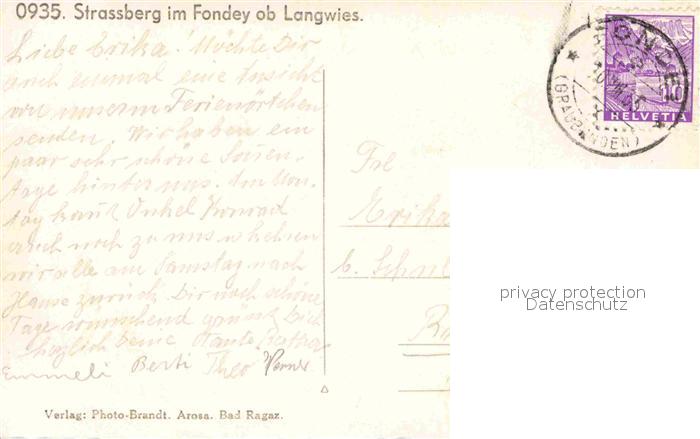 0935. Strassberg im Fondey ob Langwies.
Liebe Erika! Möchte Dir
auch einmal eine Ansicht
von unserm Ferienörtchen
senden. Wir haben ein
paar sehr schöne
tage hinter uns. Am Mon-
tag kam Onkel Konrad
auch noch zu uns u. kehren
wir alle am Samstag nach
Hause zurück. Dir noch schöne
Tage wünschend grüsst Dich
herzlich Deine Tante Bertha
Emmeli Berti Theo Werner
HELVETIA
10
(GRAUBÜNDEN)
Frl
Erika
b. Schul
privacy protection
Datenschutz
Verlag: Photo-Brandt. Arosa. Bad Ragaz.